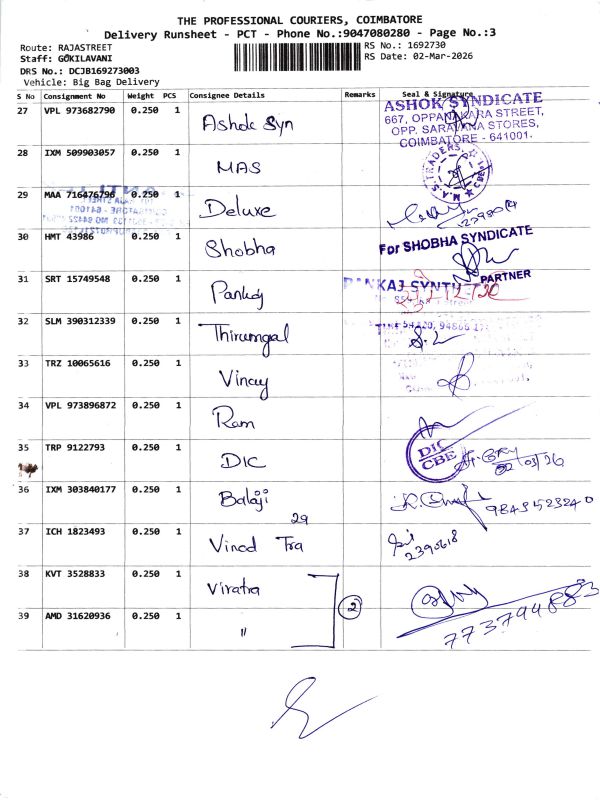 THE PROFESSIONAL COURIERS, COIMBATORE
Delivery Runsheet - PCT - Phone No.:9047080280 - Page No.:3
Route: RAJASTREET
RS No.: 1692730
Staff: GOKILAVANI
RS Date: 02-Mar-2026
DRS No.: DCJB169273003
Vehicle: Big Bag Delivery
S No Consignment No Weight PCS Consignee Details Remarks Seal & Signature
27 VPL 973682790 0.250 1 Ashok Syn
ASHOK SYNDICATE
667, OPPANAKARA STREET,
OPP. SARAVANA STORES,
COIMBATORE - 641001.
28 IXM 509903057 0.250 1 MAS
M.A.S. TRADERS CBE
29 MAA 716476796 0.250 1 Deluxe
30 HMT 43986 0.250 1 Shobha
For SHOBHA SYNDICATE
PARTNER
31 SRT 15749548 0.250 1 Pankaj
PANKAJ SYNTH
32 SLM 390312339 0.250 1 Thirumgal
33 TRZ 10065616 0.250 1 Vinay
34 VPL 973896872 0.250 1 Ram
35 TRP 9122793 0.250 1 DIC
DIC
CBE
02/03/26
36 IXM 303840177 0.250 1 Balaji
29
37 ICH 1823493 0.250 1 Vinod Tra
2390618
38 KVT 3528833 0.250 1 Viratra
2
39 AMD 31620936 0.250 1 "
7737944883